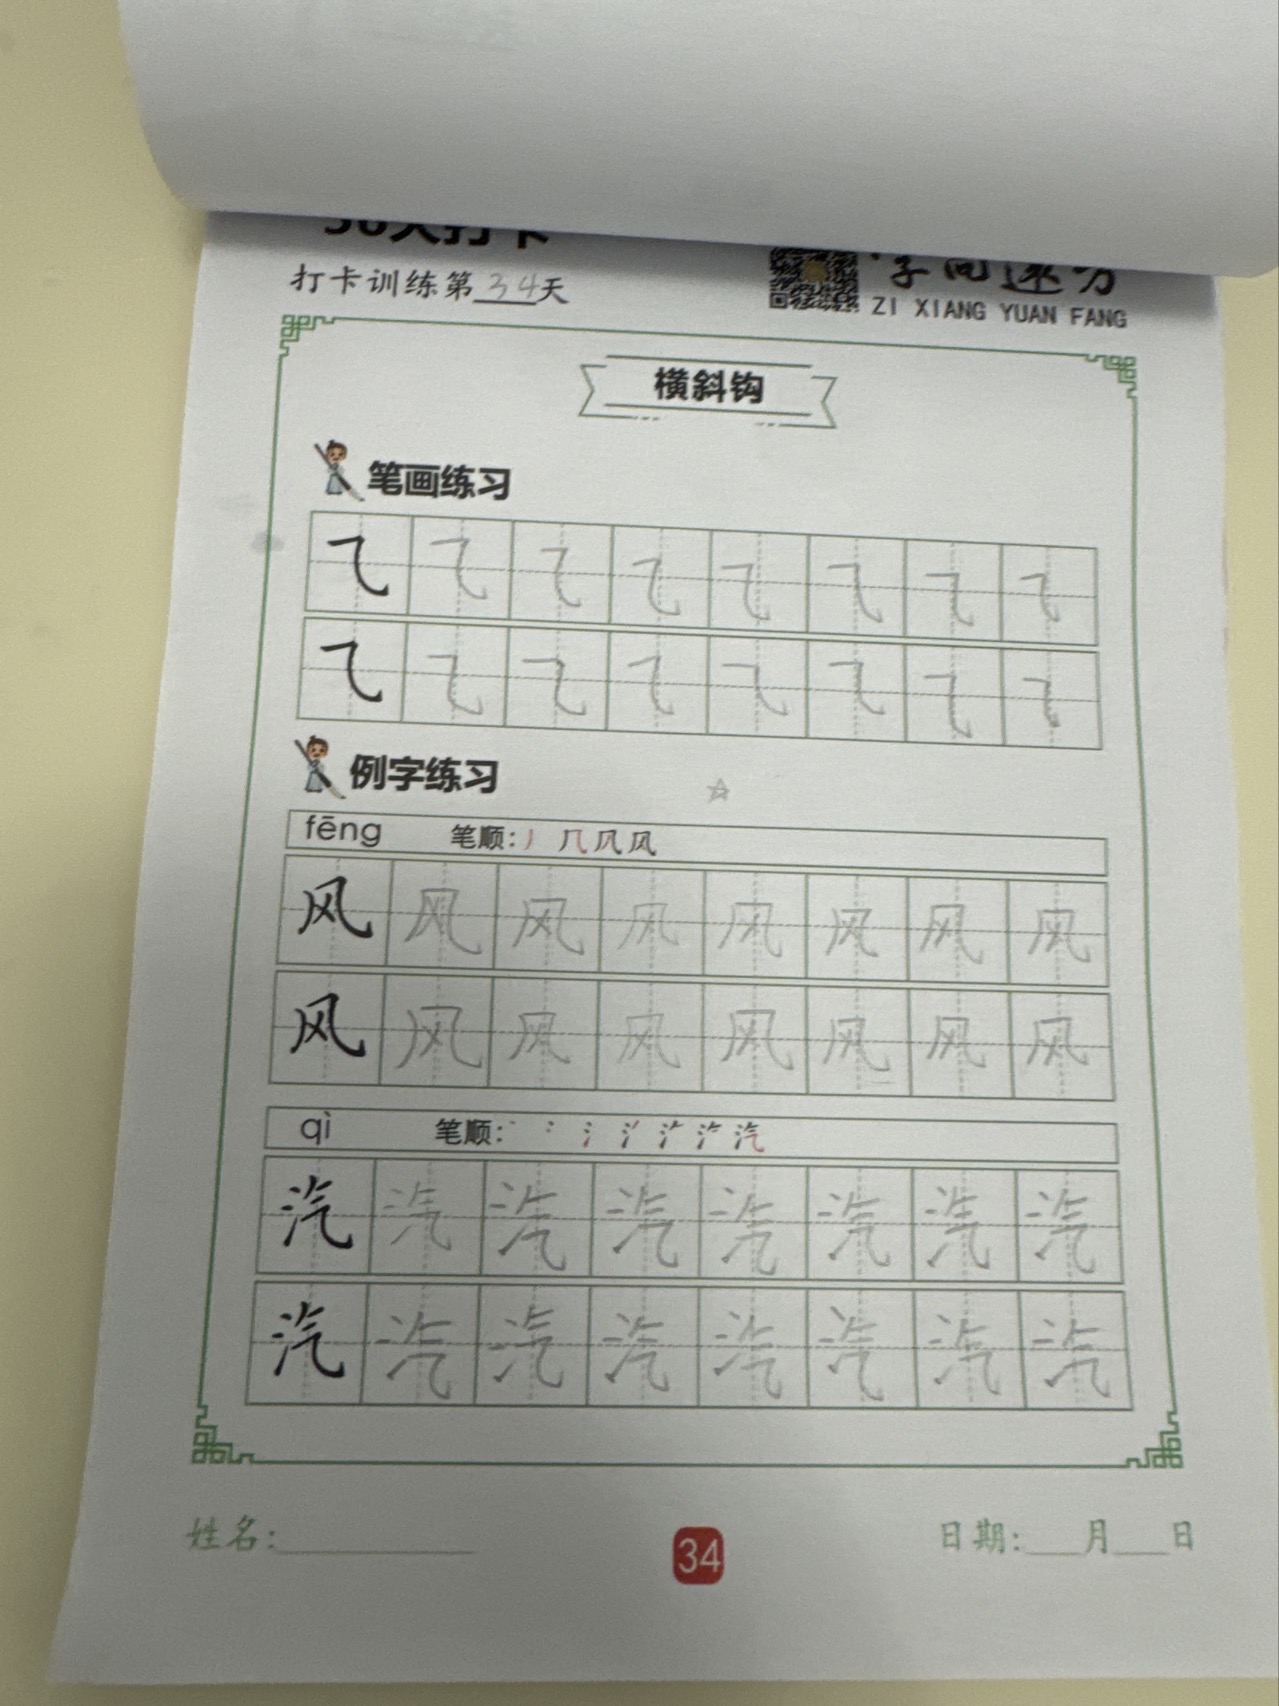 打卡训练第34天
ZI XIANG YUAN FANG
横斜钩
笔画练习
㇈ ㇈ ㇈ ㇈ ㇈ ㇈ ㇈ ㇈
㇈ ㇈ ㇈ ㇈ ㇈ ㇈ ㇈ ㇈
例字练习
fēng 笔顺:
风 风 风 风 风 风 风 风
风 风 风 风 风 风 风 风
qì 笔顺:
汽 汽 汽 汽 汽 汽 汽 汽
汽 汽 汽 汽 汽 汽 汽 汽
姓名:
34
日期:___月___日